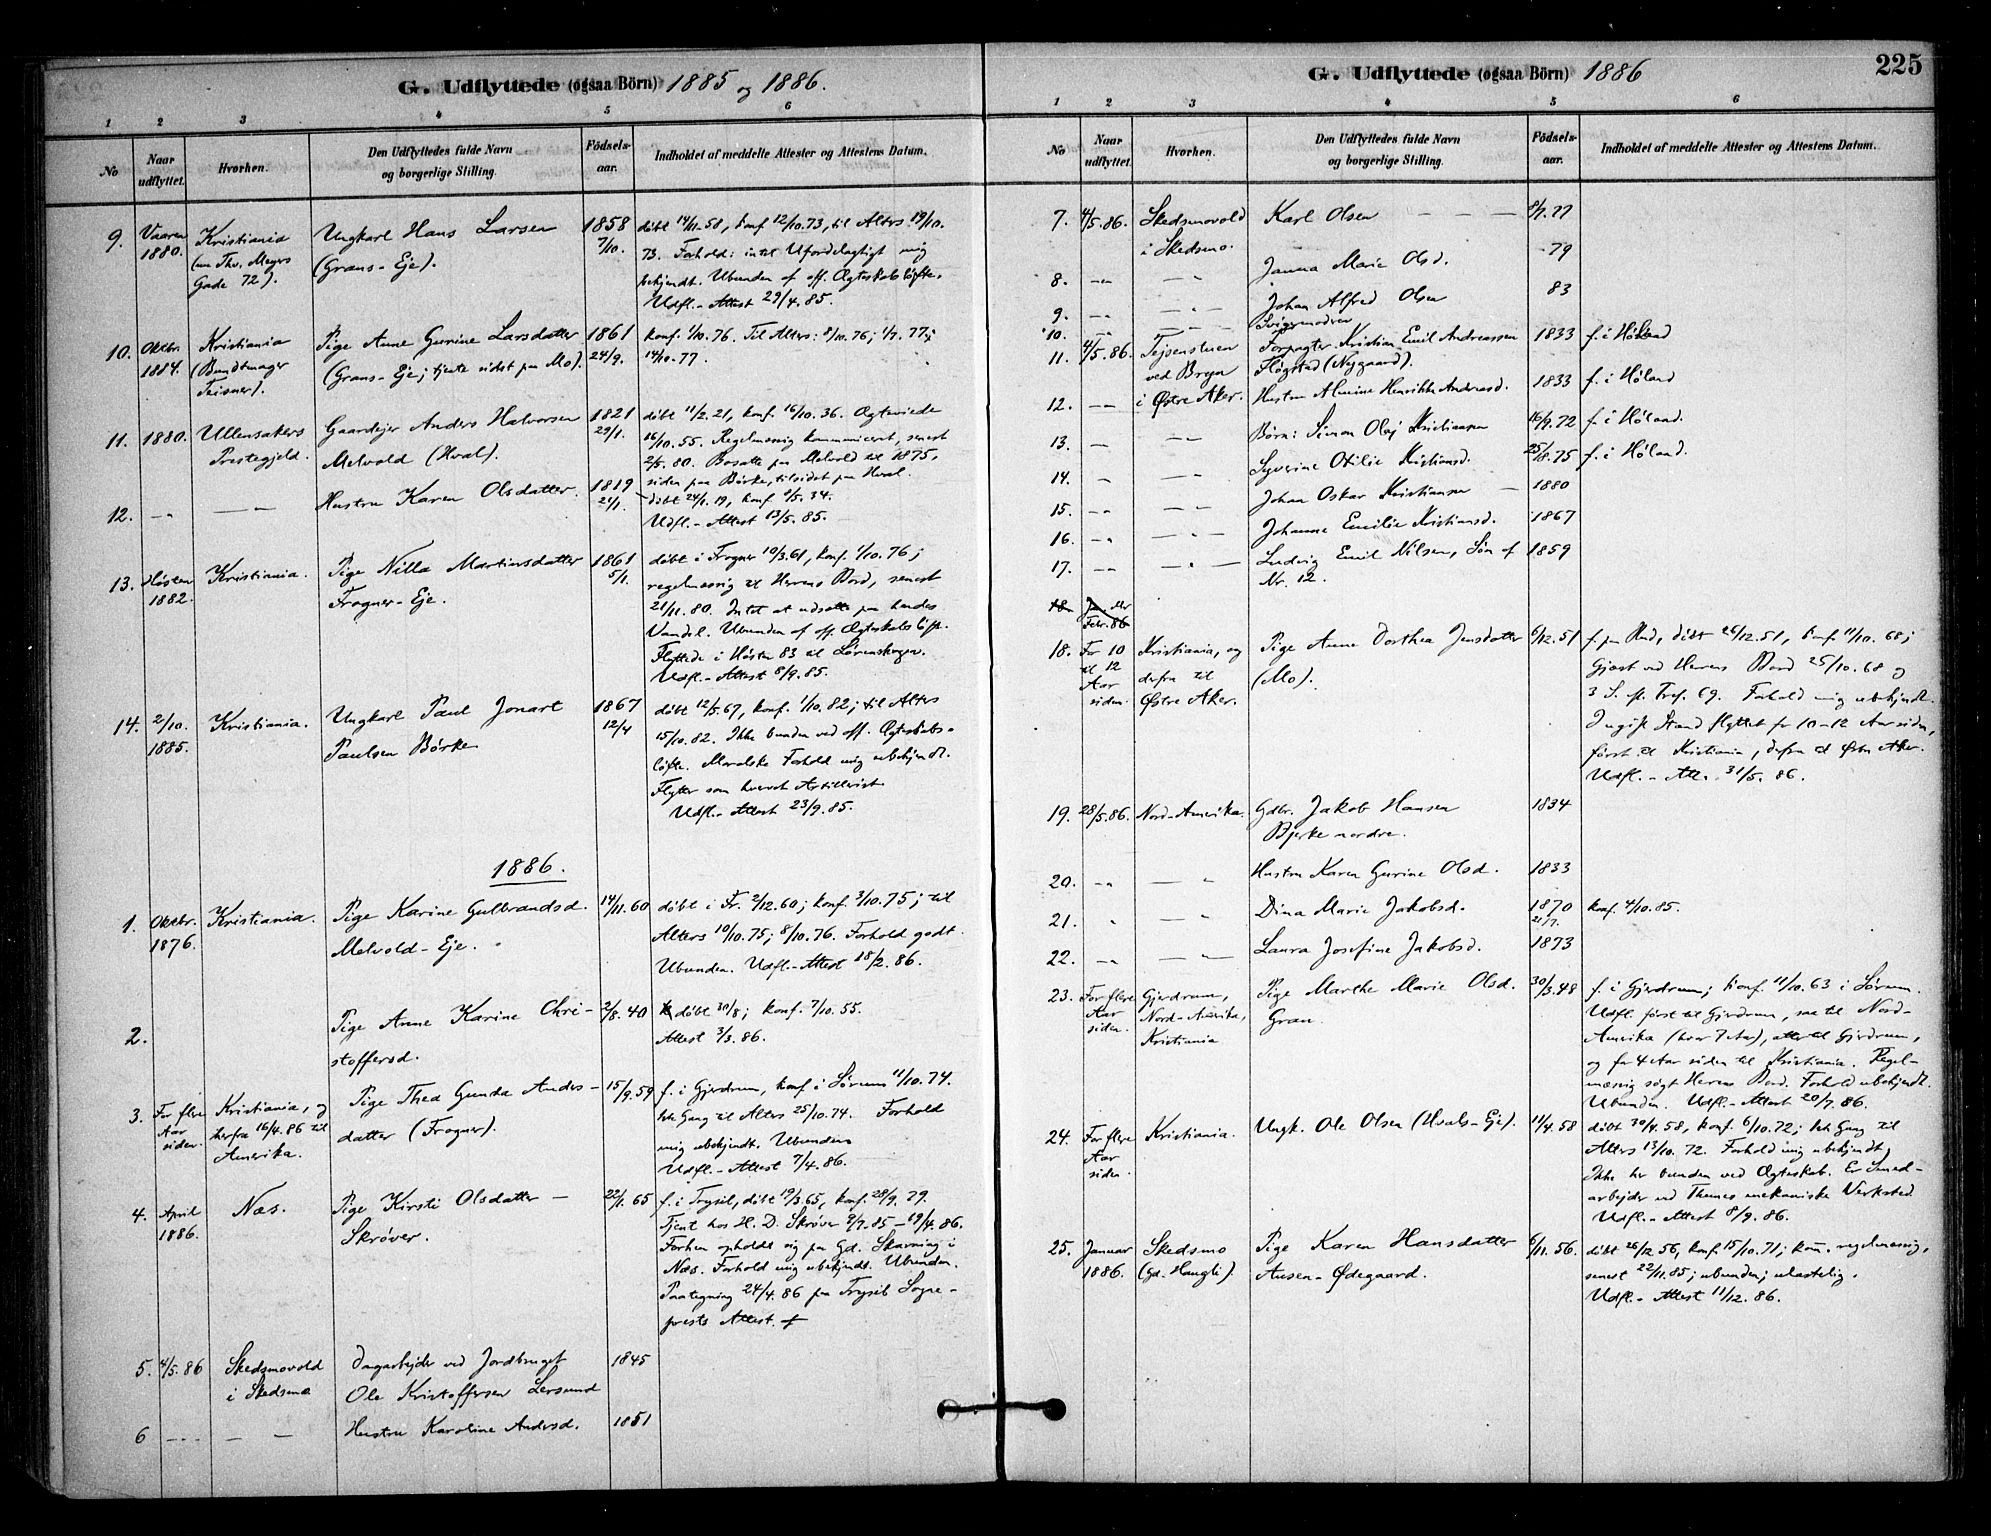 G. Udflyttede (ogsaa Börn) 1885 og 1886.
1 2 3 4 5 6
No Naar udflyttet. Hvorhen. Den Udflyttedes fulde Navn og borgerlige Stilling. Födsels-aar. Indholdet af meddelte Attester og Attestens Datum.
9. Vaaren 1880. Kristiania (Thv. Meyers Gade 72). Ungkarl Hans Larsen (Grans-Eje). 1858 7/10. döbt 14/11.58, konf 12/10.73, til Alters 19/10.
73. Forhold: intet Ufordelagtigt mig
bekjendt. Ubunden af off. Ægteskabsløfte.
Udfl.-Attest 29/4.85.
10. Oktbr. 1884. Kristiania (Bundtmager Teisner). Pige Anne Gurine Larsdatter (Grans-Eje; tjente sidst paa Mo). 1861 24/9. konf. 1/10.76. Til Alters: 8/10.76; 1/7.77;
14/10.77.
11. 1880. Ullensakers Prestegjeld. Gaardejer Anders Halvorsen Melvold (Hval). 1821 29/1. döbt 11/2.21, konf. 16/10.36. Ægteviede
16/10.55. Regelmæssig kommuniceret, senest
2/5.80. Bosatte paa Melvold til 1875,
siden paa Börke, tilsidst paa Hval.
12. -„ — „ Hustru Karen Olsdatter. 1819 21/1. döbt 24/1.19, konf. 5/5.34.
Udfl.-Attest 13/5.85.
13. Hösten 1882. Kristiania. Pige Nilla Martinsdatter Frogner-Eje. 1861 5/1. döbt i Frogner 10/3.61, konf. 1/10.76;
regelmæssig til Herrens Bord, senest
21/11.80. Intet at udsætte paa hendes
Vandel. Ubunden af off. Ægteskabsløfte.
Flyttede i Hösten 83 til Lørenskogen.
Udfl.-Attest 8/9.85.
14. 2/10. 1885. Kristiania. Ungkarl Paul Jonart Paulsen Börke 1867 12/4 döbt 12/5.67, konf. 1/10.82; til Alters
15/10.82. Ikke bunden ved off. Ægteskabs-
løfte. Moralske Forhold mig ubekjendt.
Flytter som hvervet Artillerist
Udfl.-Attest 23/9.85.
1886.
1. Oktbr. 1876. Kristiania. Pige Karine Gulbrandsd. Melvold-Eje. 14/11.60 döbt i Fr. 2/12.60; konf. 3/10.75; til
Alters 10/10.75; 8/10.76. Forhold godt.
Ubunden. Udfl.-Attest 18/2.86.
2. Pige Anne Karine Chri-
stoffersd. 2/8.40 döbt 30/8; konf. 7/10.55.
Attest 3/3.86.
3. For flere Aar siden. Kristiania, og herfra 16/4.86 til Amerika. Pige Thea Gunda Anders-
datter (Frogner). 15/9.59 f. i Gjerdrum, konf i Sørum 11/10.74.
Gang til Alters 25/10.74. Forhold
mig ubekjendt. Ubunden
Udfl.-Attest 7/4.86.
4. April 1886. Næs. Pige Kirsti Olsdatter — Skrøver. 22/1.65 f. i Trysil, döbt 19/3.65, konf. 28/9.79.
Tjent hos H. D. Skrøver 9/7.85-19/4.86.
Forhen opholdt sig paa Gd. Skavning i
Næs. Forhold mig ubekjendt. Ubunden.
Paategning 24/4.86 paa Trysil Sogne-
prests Attest. +
5. 4/5.86 Skedsmovold i Skedsmo Dagarbejder ved Jordbruget
Ole Kristoffersen Lersund 1845
6 -„- — — Hustru Karoline Andersd. 1851
G. Udflyttede (ogsaa Börn) 1886
225
1 2 3 4 5 6
No Naar udflyttet. Hvorhen. Den Udflyttedes fulde Navn og borgerlige Stilling. Födsels-aar. Indholdet af meddelte Attester og Attestens Datum.
7. 4/5.86. Skedsmovold i Skedsmo. Karl Olsen — — — 8/7.77
8. -„ — „ Janna Marie Olsd. 79
9. -„ — „ Johan Alfred Olsen 83
10. -„ Svigermoderen
11. 4/5.86. Tejsenstuen ved Bryn i Østre Aker. Forpagter Kristian Emil Andreassen Fløgstad (Nygaard). 1833 f. i Høland
12. -„ Hustru Almine Henrikke Andreasd. 1833 f. i Høland
13. — — „ Börn: Simon Olaj Kristiansen 16/9.72 f. i Høland.
14. - — „ Syverine Otilie Kristiansd. 25/8.75 f. i Høland.
15. -„ — „ Johan Oskar Kristiansen — 1880
16. -„ — „ Johanne Emilie Kristiansd. 1867
17. -„ — „ Ludvig Emil Nilsen, Søn af Nr. 12. 1859
18. Febr. 86
18. For 10 til 12 Aar siden Kristiania, og derfra til Østre Aker. Pige Anne Dorthea Jensdatter (Mo). 6/12.51 f. paa Rud, döbt 26/12.51, konf. 11/10.68;
Gjæst ved Herrens Bord 25/10.68 og
3 S. ft. Tref. 69. Forhold mig ubekjendt.
I ugift Stand flyttet for 10-12 Aar siden,
först til Kristiania, derfra til Østre Aker.
Udfl.-Att. 31/5.86.
19. 28/5.86. Nord-Amerika. Gdbr. Jakob Hansen Bjerke nordre. 1834
20. -„ — „ Hustru Karen Gurine Olsd. 1833
21. „ — „ Dina Marie Jakobsd. 1870 21/7. konf. 4/10.85.
22. -„ — „ Laura Josefine Jakobsd. 1873
23. For flere Aar siden. Gjerdrum, Nord-Amerika, Kristiania Pige Marthe Marie Olsd. Gran. 30/3.48 f. i Gjerdrum; konf. 11/10.63 i Sørum.
Udfl. först til Gjerdrum, saa til Nord-
Amerika (hvor 7 Aar), atter til Gjerdrum,
og for 4 Aar siden til Kristiania. Regel-
mæssig søgt Herrens Bord. Forhold ubekjendt.
Ubunden. Udfl.-Attest 20/7.86.
24. For flere Aar siden Kristiania. Ungk. Ole Olsen (Hvals-Eje). 11/4.58 döbt 30/4.58, konf. 6/10.72; Gang til
Alters 13/10.72. Forhold mig ubekjendt,
Ikke her bunden ved Ægteskab. Er Smed-
arbejder ved Thunes mekaniske Verksted.
Udfl.-Attest 8/9.86.
25. Januar 1886. Skedsmo (Gd. Haugli). Pige Karen Hansdatter Ausen-Ødegaard. 6/11.56. döbt 26/12.56, konf 15/10.71; kom. regelmæssig,
senest 22/11.85; ubunden; ulastelig.
Udfl.-Attest 11/12.86.